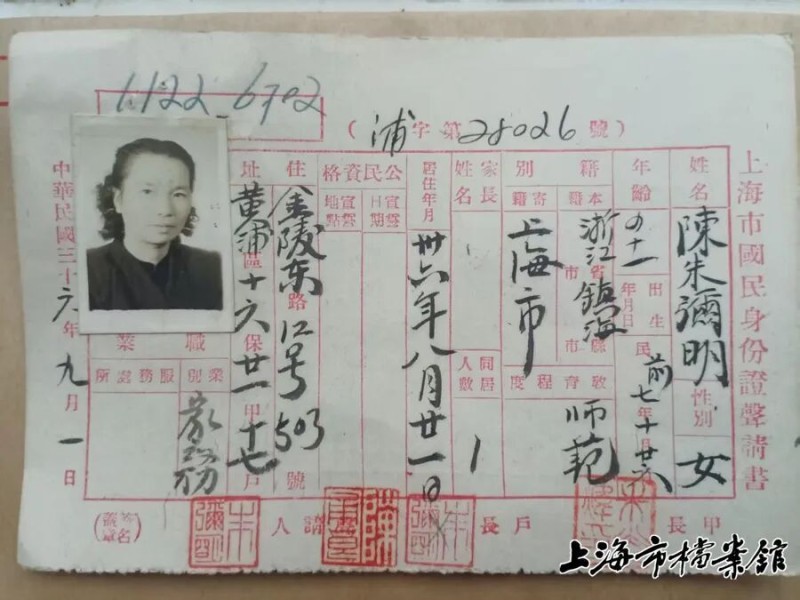 1122 6702
(浦字第28026號)
上海市國民身份證聲請書
姓名 陳朱彌明 性別 女
年齡 四十一 出生年月日 民前七年十月廿六
籍別 本籍 浙江省鎮海縣市
寄籍 上海市
教育程度 师范
家長姓名
同居人數 1
居住年月 卅六年八月廿一日
公民資格 宣誓日期
宣誓地點
住址 金陵东路 號
黄浦區十六保廿一甲十七戶
職業 業別 家务
服務處所
中華民國三十六年九月一日
甲長
戶長
聲請人 朱彌明
(簽名蓋章)
上海市檔案館